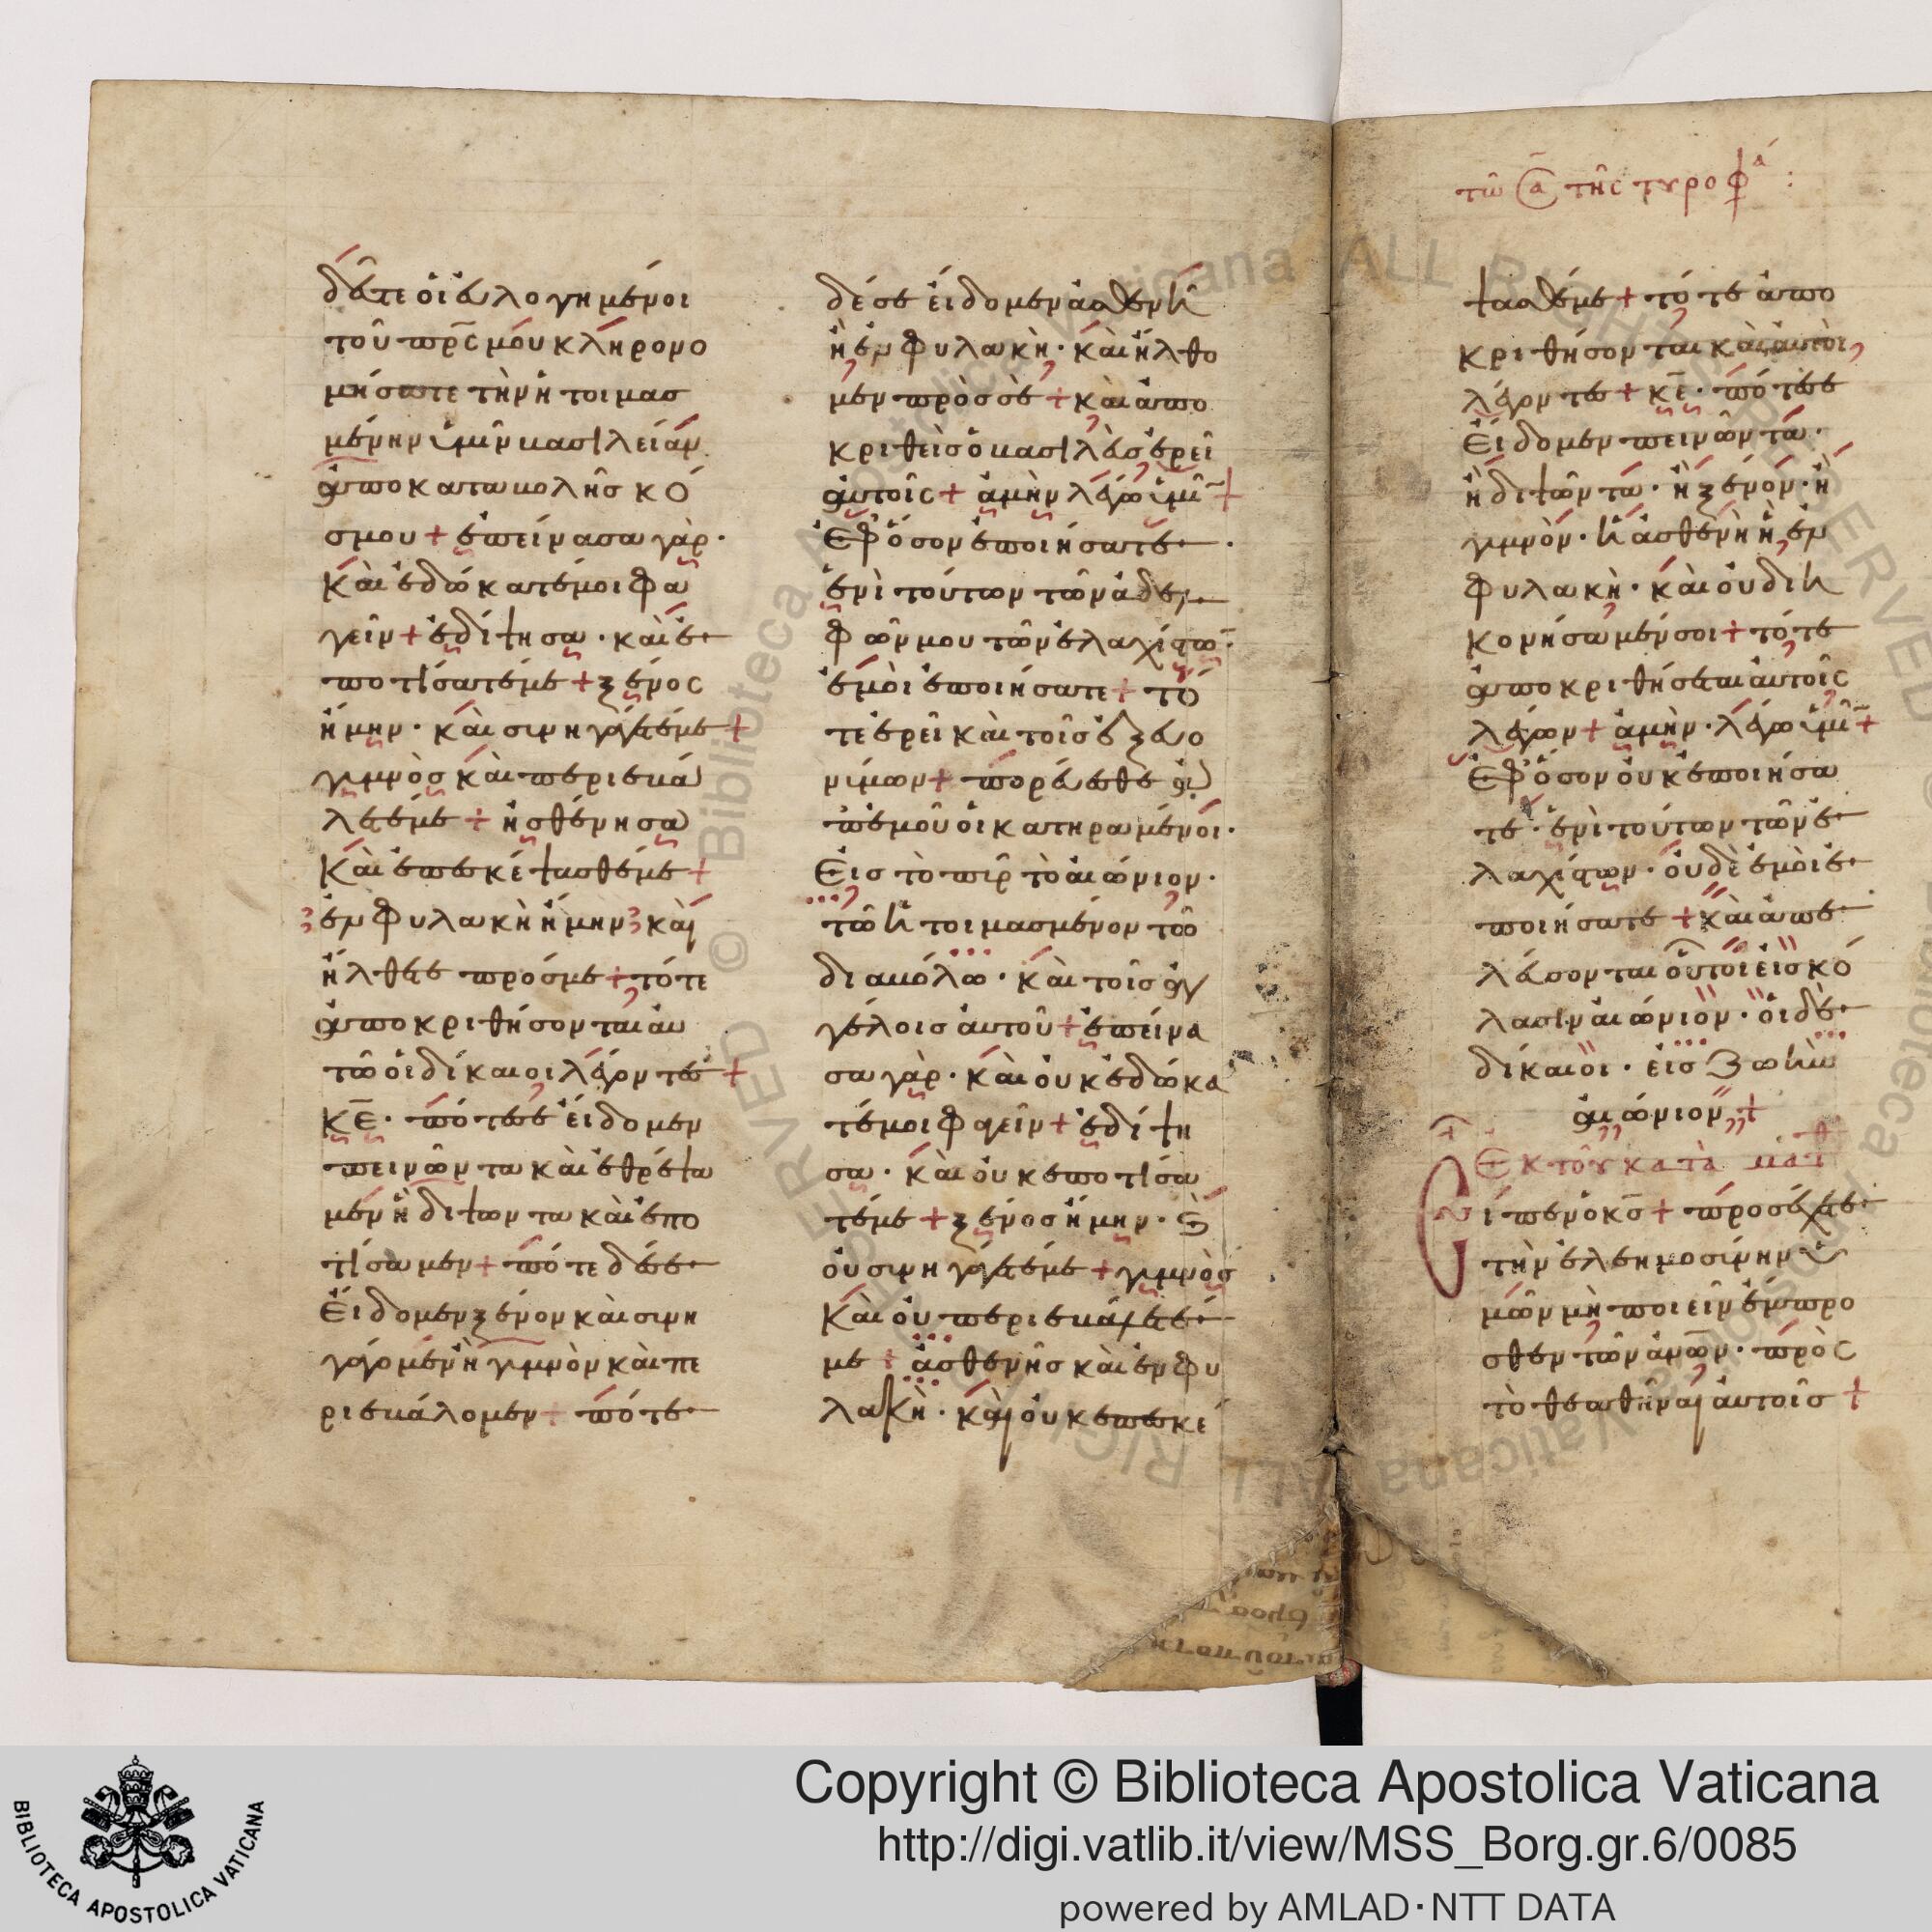 δεῦτε οἱ εὐλογημένοι
τοῦ πρ̅ς μου κληρονο
μήσατε τὴν ἡτοιμασ
μένην ὑμῖν βασιλείαν
ἀπο καταβολῆσ κό
σμου + ἐπείνασα γὰρ·
καὶ ἐδώκατέ μοι φα
γεῖν + ἐδίψησα · καὶ ἐ
ποτίσατέ με + ξένος
ἤμην · καὶ συνηγάγετέ με +
γυμνὸσ καὶ περιεβά
λετέ με + ἠσθένησα
καὶ ἐπεσκέψασθέ με +
ἐν φυλακῆ ἤμην καὶ
ἤλθετε πρόσ με + τότε
ἀποκριθήσονται αὐ
τῶ οἱ δίκαιοι λέγοντες +
κ̅ε̅ · πότε σὲ εἴδομεν
πεινῶντα καὶ ἐθρέψα
μεν ἢ διψῶντα καὶ ἐπο
τίσαμεν + πότε δέ σε
εἴδομεν ξένον καὶ συνη
γάγομεν ἢ γυμνὸν καὶ πε
ριεβάλομεν + πότε
δέ σε εἴδομεν ἀσθενῆ
ἢ ἐν φυλακῆ · καὶ ἤλθο
μεν πρὸσ σὲ + καὶ ἀπο
κριθεὶσ ὁ βασιλεὺσ ἐρεῖ
αὐτοῖς + ἀμὴν λέγω ὑμῖ̅ +
Ἐφ' ὅσον ἐποιήσατε
ἑνὶ τούτων τῶν ἀδελ
φῶν μου τῶν ἐλαχίστω̅·
ἐμοὶ ἐποιήσατε + τό
τε ἐρεῖ καὶ τοῖσ ἐξ εὐω
νύμων + πορεύεσθε ἀ
π' ἐμοῦ οἱ κατηραμένοι·
Εἰσ τὸ πῦρ τὸ αἰώνιον·
τῶ ἡτοιμασμένον τῶ
διαβόλω · καὶ τοῖσ ἀγ
γέλοισ αὐτοῦ + ἐπείνα
σα γὰρ · καὶ οὐκ ἐδώκα
τέ μοι φαγεῖν + ἐδίψη
σα · καὶ οὐκ ἐποτίσα
τέ με + ξένοσ ἤμην · ϗ
οὐ συνηγάγετέ με + γυμνὸσ
καὶ οὐ περιεβάλετέ
με + ἀσθενῆσ καὶ ἐν φυ
λακῆ · καὶ οὐκ ἐπεσκέ
τῶ α̅ τῆς τυροφά :
ψασθέ με + τότε ἀπο
κριθήσονται καὶ αὐτοὶ
λέγοντες + κ̅ε̅ · πότε σὲ
Εἴδομεν πεινῶντα·
ἢ διψῶντα · ἢ ξένον · ἢ
γυμνὸν · ἢ ἀσθενὴ ἢ ἐν
φυλακῆ · καὶ οὐ διη
κονήσαμέν σοι + τότε
ἀποκριθήσεται αὐτοῖς
λέγων + ἀμὴν · λέγω ὑμῖ̅ +
Ἐφ' ὅσον οὐκ ἐποιήσα
τε · ἑνὶ τούτων τῶν ἐ
λαχίστων · οὐδὲ ἐμοὶ ἐ
ποιήσατε + καὶ ἀπε
λεύσονται οὗτοι εἰσ κό
λασιν αἰώνιον · οἱ δὲ
δίκαιοι · εἰσ ζωὴν
αἰώνιον +
Ἐκ τοῦ κατὰ ματθ
Εἶπεν ὁ κ̅σ̅ + προσέχετε
τὴν ἐλεημοσύνην ὑ
μῶν μὴ ποιεῖν ἔμπρο
σθεν τῶν ἀν̅ω̅ν · πρὸς
τὸ θεαθῆναι αὐτοῖσ +
BIBLIOTECA APOSTOLICA VATICANA
Copyright © Biblioteca Apostolica Vaticana
http://digi.vatlib.it/view/MSS_Borg.gr.6/0085
powered by AMLAD·NTT DATA